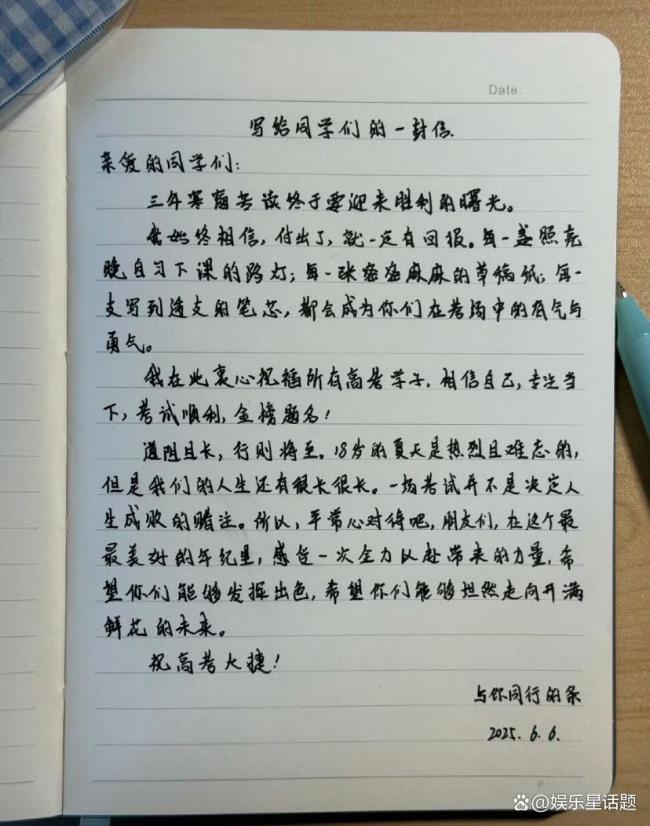 Date:
写给同学们的一封信
亲爱的同学们:
三年寒窗苦读终于要迎来胜利的曙光。
我始终相信,付出了,就一定有回报。每一盏照亮
晚自习下课的路灯;每一张密密麻麻的草稿纸;每一
支写到透支的笔芯,都会成为你们在考场中的底气与
勇气。
我在此衷心祝福所有高考学子,相信自己,专注当
下,考试顺利,金榜题名!
道阻且长,行则将至。18岁的夏天是热烈且难忘的,
但是我们的人生还有很长很长。一场考试并不是决定人
生成败的赌注。所以,平常心对待吧,朋友们,在这个最
最美好的年纪里,感受一次全力以赴带来的力量,希
望你们能够发挥出色,希望你们能够坦然走向开满
鲜花的未来。
祝高考大捷!
与你同行的
2025.6.6.
P
@娱乐星话题